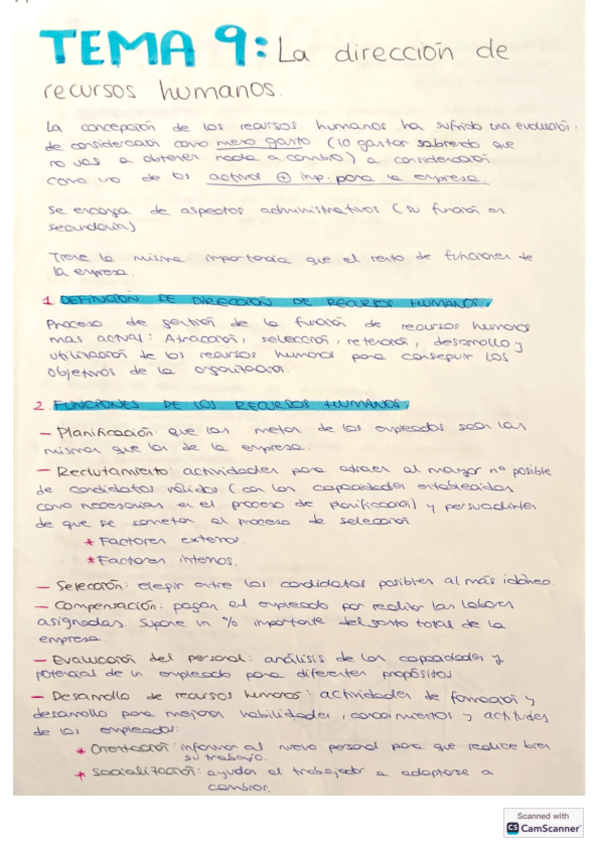 TEMA 9: La dirección de
recursos humanos.
La concepción de los recursos humanos ha sufrido una evolución:
de consideración como mero gasto (lo gastas sabiendo que
no vas a obtener nada a cambio) a consideración
como uno de los activos ⊕ imp. para la empresa.
Se encarga de aspectos administrativos (su función es
secundaria)
Tiene la misma importancia que el resto de funciones de
la empresa.
1. DEFINICIÓN DE DIRECCIÓN DE RECURSOS HUMANOS.
Proceso de gestión de la función de recursos humanos
más actual: Atracción, selección, retención, desarrollo y
utilización de los recursos humanos para conseguir los
objetivos de la organización.
2. FUNCIONES DE LOS RECURSOS HUMANOS.
— Planificación: que las metas de los empleados sean las
mismas que las de la empresa.
— Reclutamiento: actividades para atraer al mayor nº posible
de candidatos válidos (con las capacidades establecidas
como necesarias en el proceso de planificación) y persuadirles
de que se sometan al proceso de selección.
* Factores externos.
* Factores internos.
— Selección: elegir entre los candidatos posibles al más idóneo.
— Compensación: pagar al empleado por realizar las labores
asignadas. Supone un % importante del gasto total de la
empresa.
— Evaluación del personal: análisis de las capacidades y
potencial de un empleado para diferentes propósitos
— Desarrollo de recursos humanos: actividades de formación y
desarrollo para mejorar habilidades, conocimientos y actitudes
de los empleados:
* Orientación: informar al nuevo personal para que realice bien
su trabajo.
* Socialización: ayudar al trabajador a adaptarse a
cambios.
Scanned with
CS CamScanner